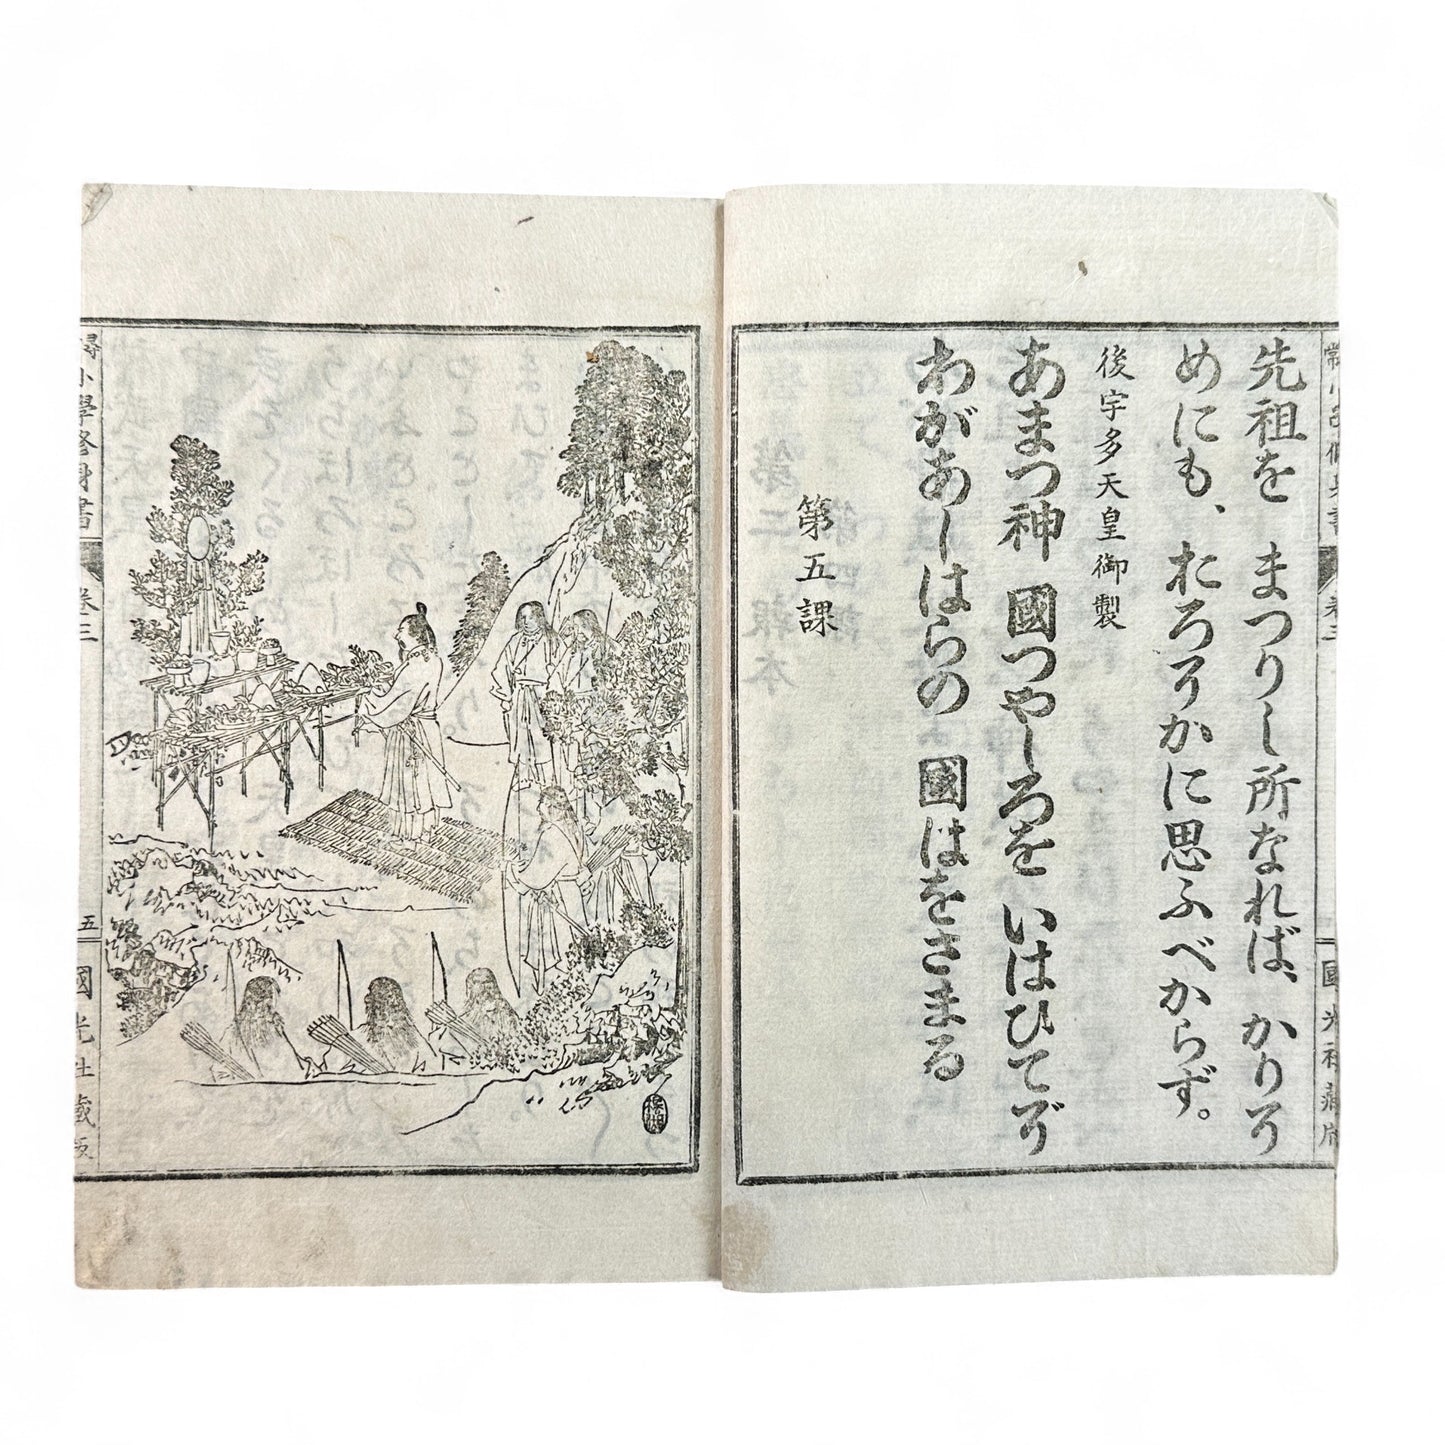 先祖を まつりし所なれば、かりそ
めにも、おろそかに思ふべからず。
後宇多天皇御製
あまつ神 國つやしろを いはひてぞ
わがあしはらの 國はをさまる
第五課
尋常小學修身書 卷三 五 國光社藏版